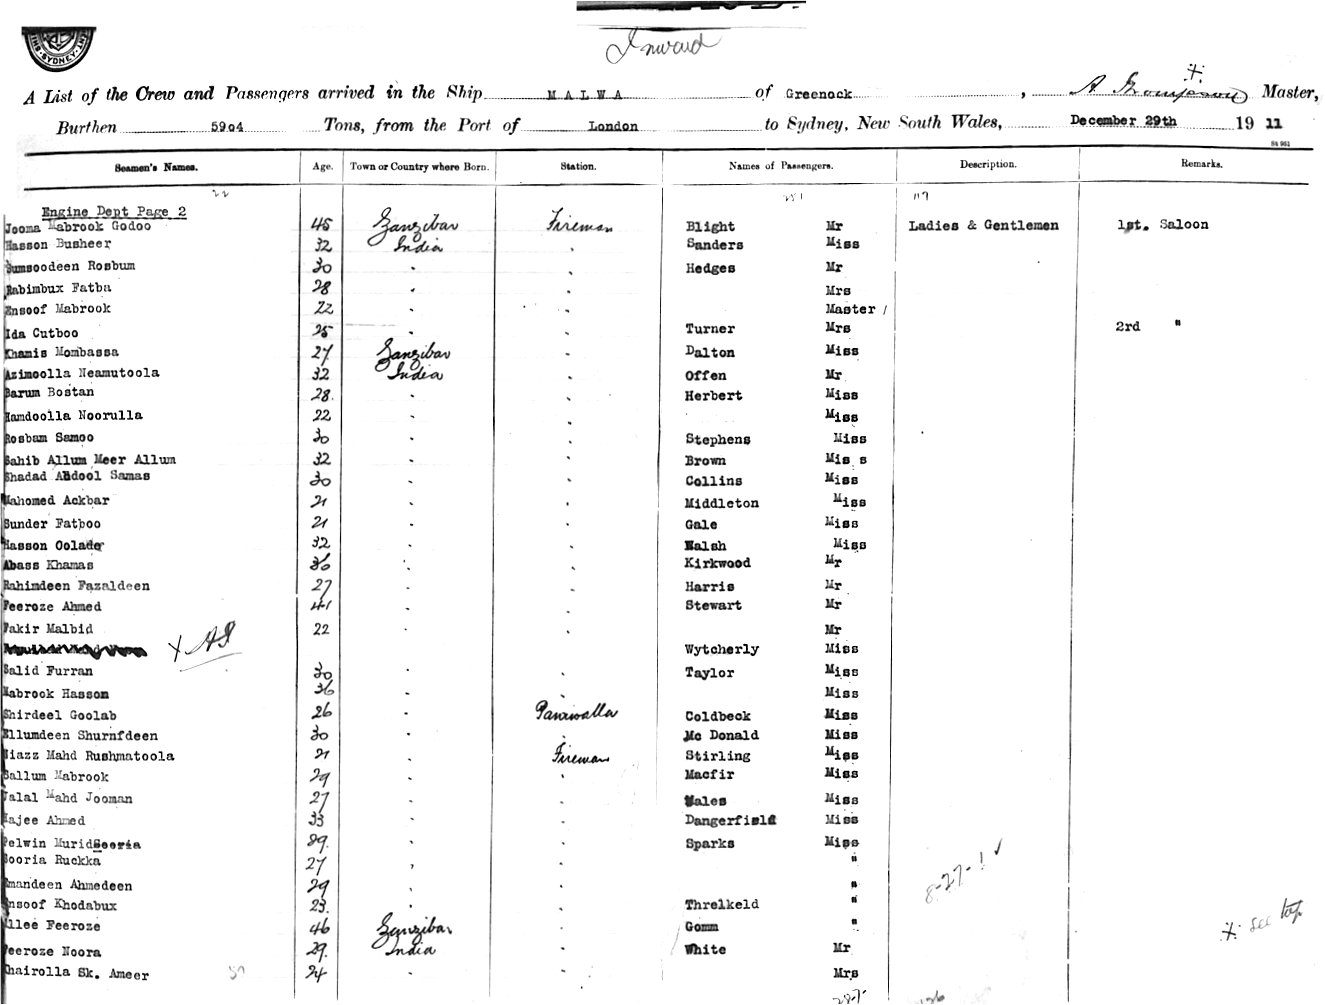 Inward
A List of the Crew and Passengers arrived in the Ship MALWA of Greenock, A Thompson Master,
Burthen 5904 Tons, from the Port of London to Sydney, New South Wales, December 29th 1911
Seamen's Names. Age. Town or Country where Born. Station. Names of Passengers. Description. Remarks.
22 117
Engine Dept Page 2
Jooma Mabrook Godoo 45 Zanzibar Fireman Blight Mr Ladies & Gentlemen 1st. Saloon
Hasson Busheer 32 India " Sanders Miss
Sumsoodeen Rosbum 30 " " Hedges Mr
Rabimbux Fatba 28 " " Mrs
Ensoof Mabrook 22 " " Master /
Ida Cutboo 25 " " Turner Mrs 2rd "
Khamis Mombassa 27 Zanzibar " Dalton Miss
Azimoolla Neamutoola 32 India " Offen Mr
Barum Bostan 28. " " Herbert Miss
Hamdoolla Noorulla 22 " " Miss
Rosbam Samoo 30 " " Stephens Miss
Sahib Allum Meer Allum 32 " " Brown Mis s
Shadad Abdool Samas 30 " " Collins Miss
Mahomed Ackbar 21 " " Middleton Miss
Sunder Fatboo 21 " " Gale Miss
Hasson Oolader 32 " " Walsh Miss
Abass Khamas 36 " " Kirkwood Mr
Rahimdeen Fazaldeen 27 " " Harris Mr
Feeroze Ahmed 41 " " Stewart Mr
Fakir Malbid 22 " " Mr
Wytcherly Miss
Salid Furran 30 " " Taylor Miss
Mabrook Hasson 36 " " Miss
Shirdeel Goolab 26 " Paniwalla Coldbeck Miss
Ellumdeen Shurnfdeen 30 " Mc Donald Miss
Niazz Mahd Rushmatoola 21 " Fireman Stirling Miss
Sallum Mabrook 29 " " Macfir Miss
Jalal Mahd Jooman 27 " " Wales Miss
Hajee Ahmed 33 " " Dangerfield Miss
Pelwin Murid Sooria 29. " " Sparks Miss
Sooria Ruckka 27 " " "
Emandeen Ahmedeen 29 " " "
Ensoof Khodabux 23. " " Threlkeld "
Allee Feeroze 46 Zanzibar " Gomm "
Feeroze Noora 29. India " White Mr
Chairolla Sk. Ameer 24 " " Mrs
8-27-1 ✓
see top